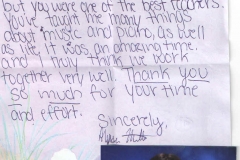 but you were one of the best teachers.
You've taught me many things
about music and piano, as well
as life. It was an amazing time.
and I truly think we work
together very well. Thank you
so much for your time
and effort.
Sincerely,